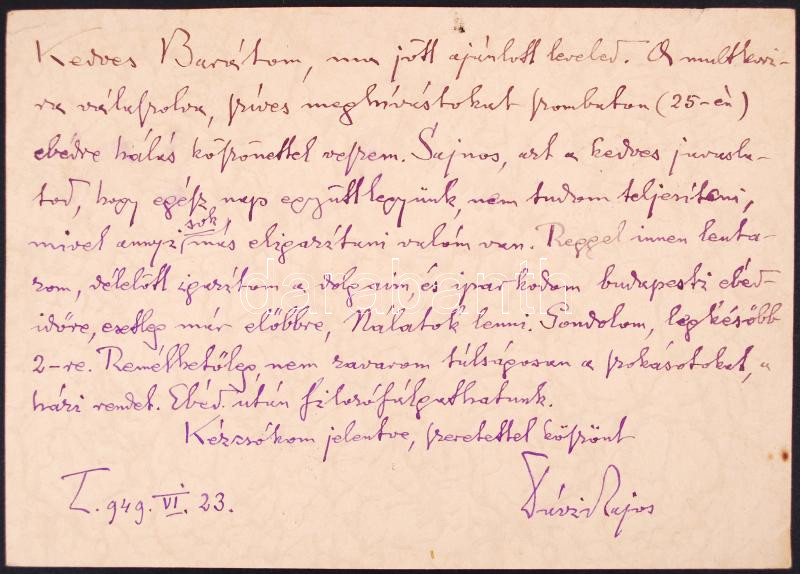 Kedves Barátom, ma jött ajánlott leveled. A multkori-
ra válaszolva, szíves meghívástokat szombaton (25-én)
ebédre hálás köszönettel veszem. Sajnos, azt a kedves javasla-
tod, hogy egész nap együtt legyünk, nem tudom teljesíteni,
sok
mivel annyi más eligazítani valóm van. Reggel innen leuta-
zom, délelőtt igazítom a dolgaim, és iparkodom budapesti ebéd-
időre, esetleg már előbbre, Nálatok lenni. Gondolom, legkésőbb
2-re. Remélhetőleg, nem zavarom túlságosan a szokásotokat, a
házi rendet. Ebéd után filozófálgathatunk.
Kézcsókom jelentve, szeretettel köszönt
T. 949. VI. 23.
Fülep Lajos
darabanth